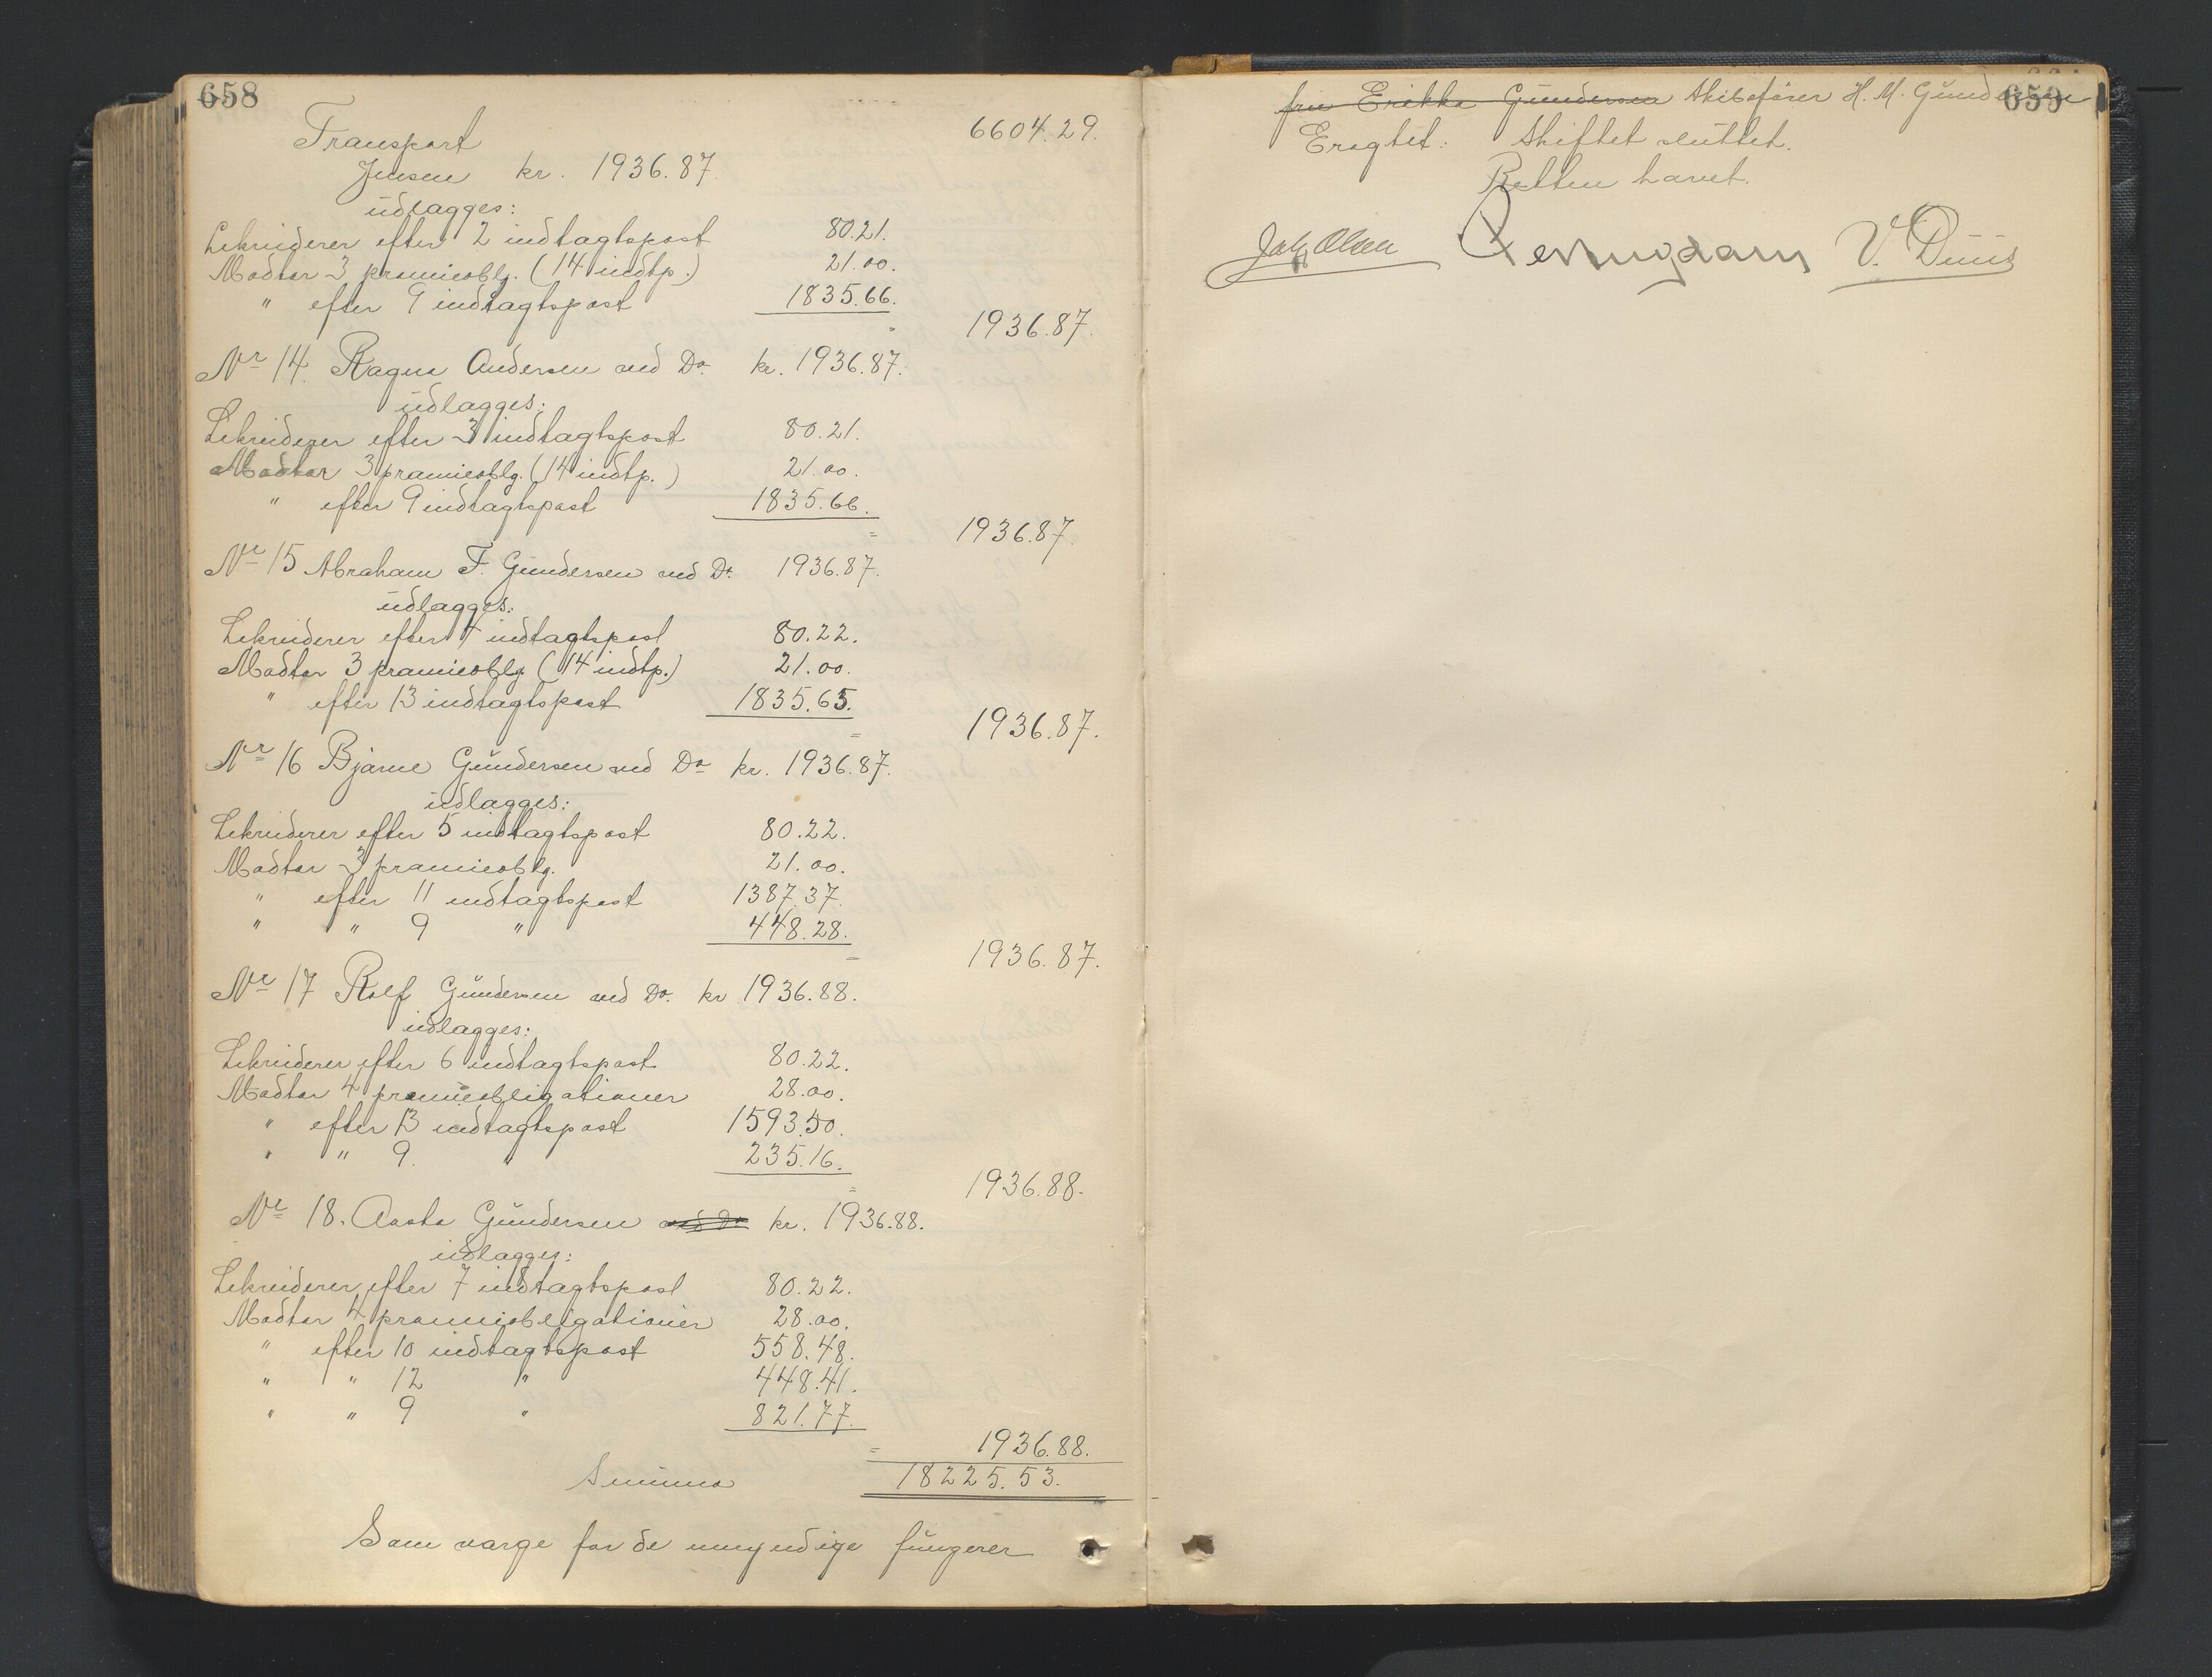 658
Transport 6604.29.
Jensen kr. 1936.87.
udlægges:
Løkreiderer efter 2 indtægtspost 80.21.
Modtar 3 præmieoblg. (14 indtp.) 21.00.
" efter 9 indtægtspost 1835.66.
= 1936.87.
Nr 14. Ragna Andersen ved Do. kr. 1936.87.
udlægges:
Løkreiderer efter 3 indtægtspost 80.21.
Modtar 3 præmieoblg. (14 indtp.) 21.00.
" efter 9 indtægtspost 1835.66.
= 1936.87.
Nr 15 Abraham F. Gundersen ved Do. 1936.87.
udlægges:
Løkreiderer efter 4 indtægtspost 80.22.
Modtar 3 præmieoblg (14 indtp.) 21.00.
" efter 13 indtægtspost 1835.65.
= 1936.87.
Nr 16 Bjarne Gundersen ved Do kr. 1936.87.
udlægges:
Løkreiderer efter 5 indtægtspost 80.22.
Modtar 3 præmieoblg. 21.00.
" efter 11 indtægtspost 1387.37.
" " 9 " 448.28.
= 1936.87.
Nr 17 Rolf Gundersen ved Do. kr 1936.88.
udlægges:
Løkreiderer efter 6 indtægtspost 80.22.
Modtar 4 præmieobligationer 28.00.
" efter 13 indtægtspost 1593.50.
" " 9. " 235.16.
= 1936.88.
Nr 18. Aasta Gundersen ved Do kr. 1936.88.
udlægges:
Løkreiderer efter 7 indtægtspost 80.22.
Modtar 4 præmieobligationer 28.00.
" efter 10 indtægtspost 558.48.
" " 12 " 448.41.
" " 9 " 821.77.
= 1936.88.
Summa 18225.53.
Som værge for de umyndige fungerer
659
fru Erikka Gundersen Skibsfører H. M. Gundersen
Eragtet: Skiftet sluttet.
Retten hævet.
Olsen V. Duus